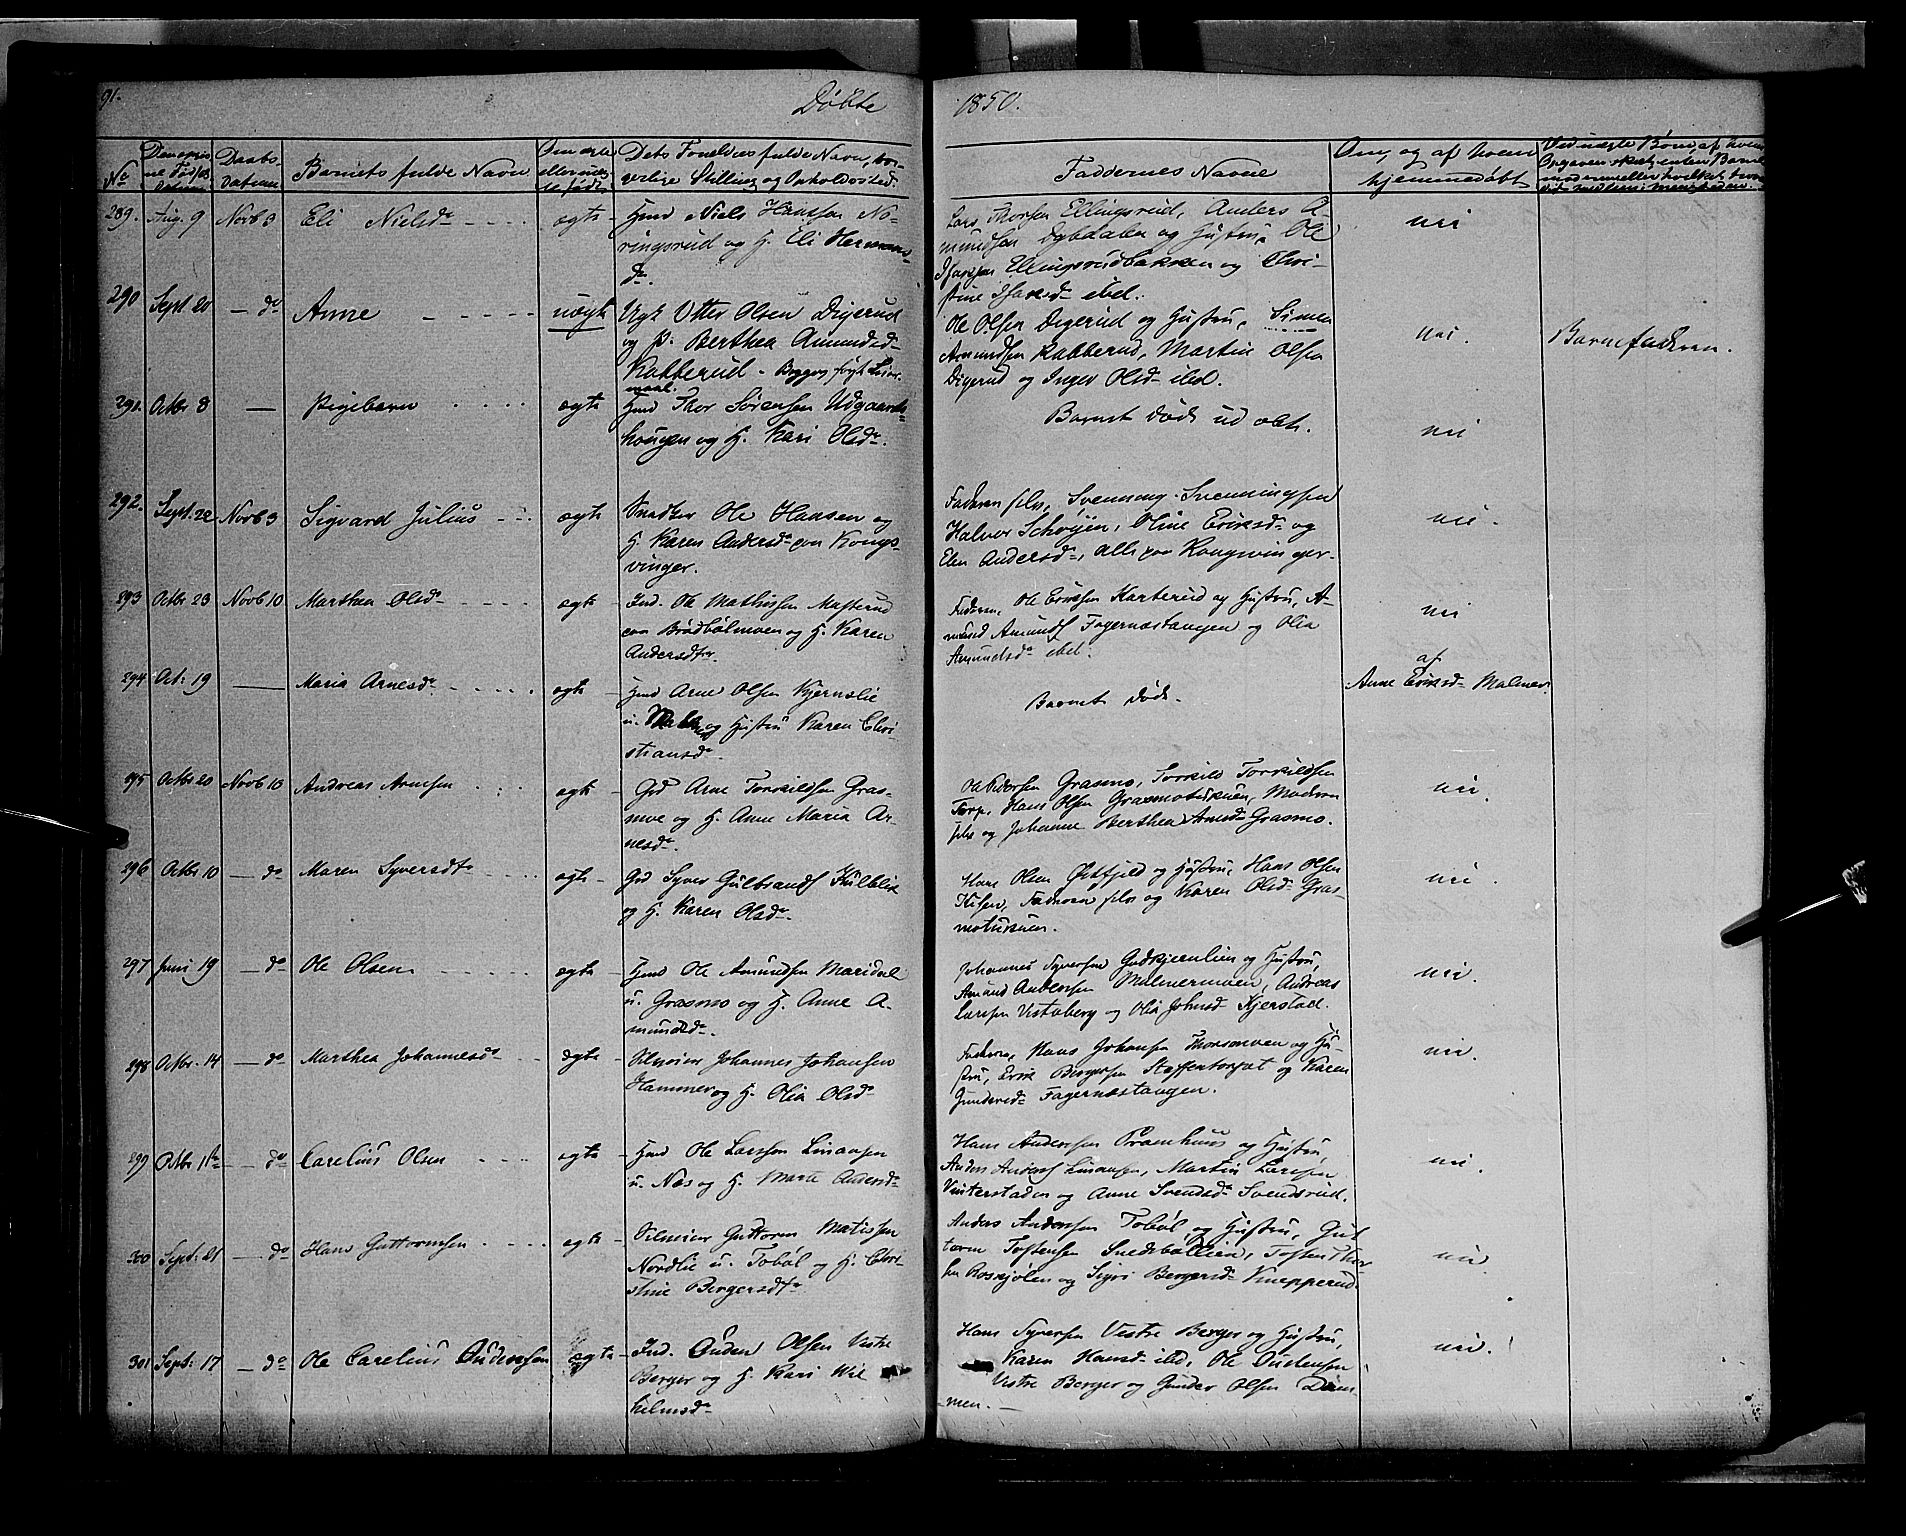 91.
Döbte
1850.
No
Daabs-
datum
Barnets fulde Navn
Faddernes Navne
Om, og af hvem
hjemmedöbt
289. Aug. 9 Novb 3 Eli Nielsd. ægte Hmd Niels Hansen No-
ringsrud og H. Eli Hermans-
d.
Lars Thorsen Ellingsrud, Anders A-
mundsen Dybdalen og Hustru, Ole
Isaksen Ellingsrudbakken og Chri-
stine Isaksd ibd.
nei
290 Sept 20 — do Anne uægte Ugk Otter Olsen Digerud
og P. Berthea Amundsd
Kabberud - Begges første Leier-
maal.
Ole Olsen Digerud og Hustru, Simen
Amundsen Kabberud, Martin Olsen
Digerud og Inger Olsd ibd.
nei.
Barnefaderen.
291. Octbr 8 — Pigebarn ægte Hmd Thor Sörensen Udgaards-
haugen og H. Kari Olsd.
Barnet död
nei
292. Sept. 22 Novb 3 Sigvard Julius ægte Snedker Ole Hansen og
H. Karen Andersd. paa Kongs-
vinger.
Faderen selv, Svenning Svenningsen
Halvor Schöyen, Oline Eriksd og
Elen Andersd, alle paa Kongsvinger-
nei.
293 Octbr 23 Novb 10 Marthea Olsd. ægte Ind. Ole Mathissen Masterud
paa Brödbölmoen og H. Karen
Andersdtr
Faderen, Ole Eriksen Karterud og Hustru, A-
mund Amunds Fagernæstangen og Olia
Amundsd. ibd.
nei
294 Oct: 19 — Maria Arnesd. ægte Hmd Arne Olsen Kjernslie
og Hustru Karen Chri-
stiansd.
Barnet död.
af
Anne Eriksd Malmer
295 Octbr 20 Novb 10 Andreas Arnesen ægte Grd Arne Torkildsen Gras-
moe og H. Anne Maria Ar-
nesd.
Ole Pedersen Grasmo, Torkild Torkildsen
Torp, Hans Olsen Grasmoteskuen, Moderen
selv og Johanne Berthea Arnesd Grasmo.
nei.
296 Octbr 10 — do Maren Syversdt. ægte Grd Syver Gulbrands Kulblik
og H. Karen Olsd.
Hans Olsen Östfjeld og Hustru, Hans Olsen
Faderen selv og Karen Olsd Gras-
moteskuen.
nei.
297 Juni 19 — do Ole Olsen ægte Hmd Ole Amundsen Maridal
u. Grasmo og H. Anne A-
mundsd.
Johannes Syversen Godkjernlien og Hustru,
Amund Andersen Malmermoen, Andreas
Larsen Vestaberg og Olia Johnsd Kjerstad.
nei.
298 Octbr. 14 — do Marthea Johannesd. ægte Selveier Johannes Johansen
Hammer og H. Olia Olsd.
Faderen, Hans Johansen Thorsmoen og Hu-
stru, Erik Bergersen Staffentorpet og Karen
Gundersd Fagernæstangen.
nei.
299 Octbr 1ste — do Carelius Olsen ægte Hmd Ole Larssen Linaasen
u. Næs og H. Marte Andersd.
Hans Andersen Pramhuus og Hustru,
Anders Anders Linaasen, Martin Larsen
Vinterstaden og Anne Svendsd. Svendsrud.
nei.
300 Sept: 21 — do Hans Guttormsen ægte Selveier Guttorm Matissen
Nordlie u. Toböl og H. Chri-
stine Bergersdt.
Anders Andersen Toböl og Hustru, Gut-
torm Tostensen Snedsböllien, Tosten Thor-
sen Roskjölen og Sigri Bergersd. Knapperud.
nei.
301 Sept: 17 — do Ole Carelius Oudensen ægte Ind. Ouden Olsen Vestre
Berger og H. Kari Wil-
helmsd.
Hans Syversen Vestre Berger og Hustru,
Karen Hansd ibd, Ole Oudensen
Vestre Berger og Gunder Olsen Dam-
men. —
nei.